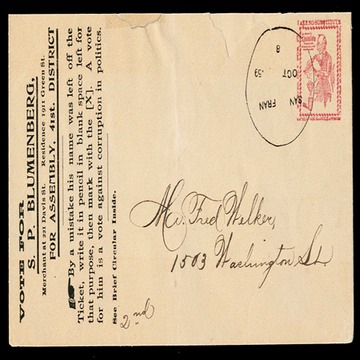 VOTE FOR
S. P. BLUMENBERG,
Merchant at 221 Davis St. Residence 1911 Green St.
FOR ASSEMBLY, 41st. DISTRICT
By a mistake his name was left off the
Ticket, write it in pencil in blank space left for
that purpose, then mark with the [X]. A vote
for him is a vote against corruption in politics.
See Brief Circular Inside.
SAN FRAN
OCT 59
8
Mr. Fred Welker,
1503 Washington St.
2nd